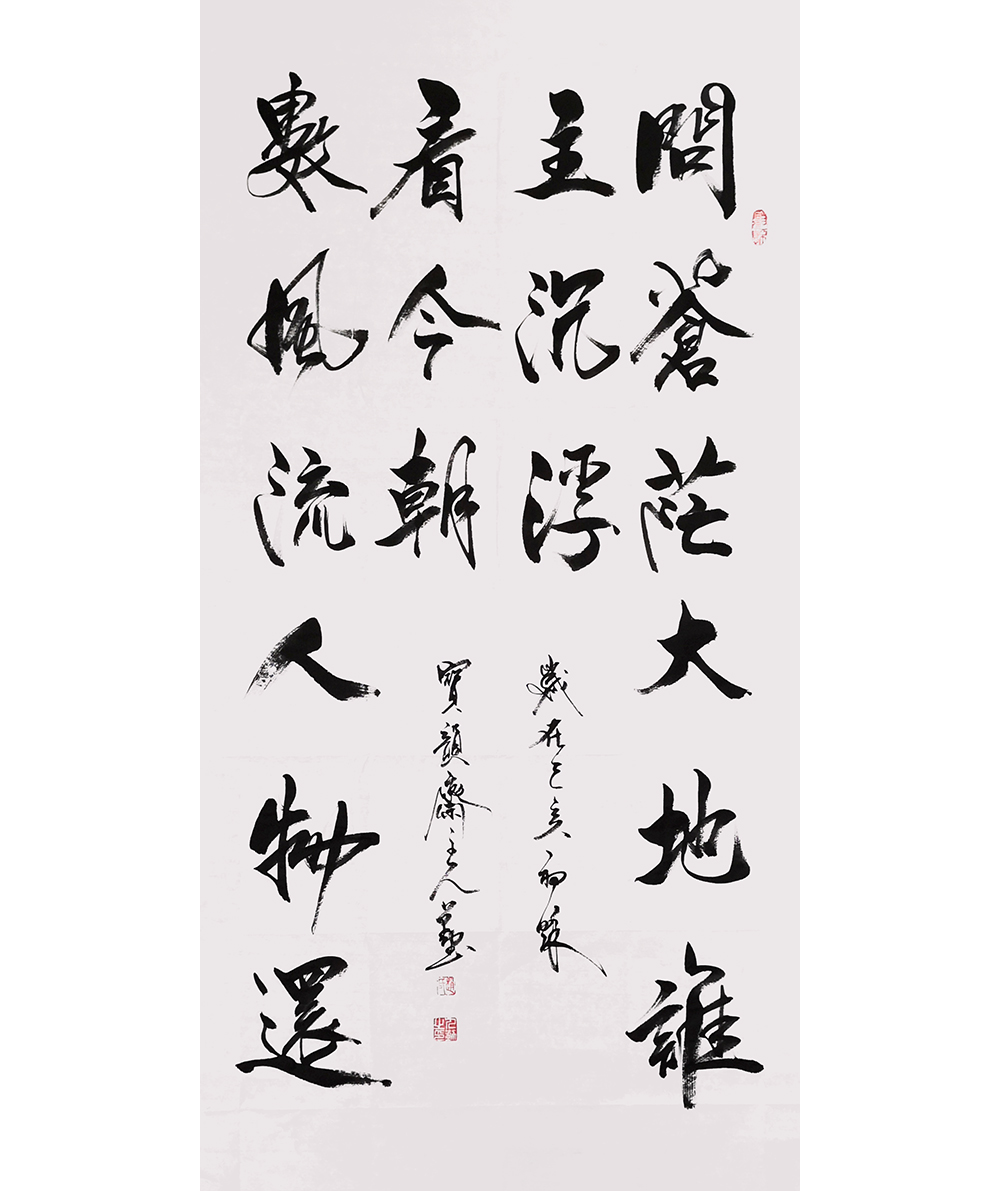 問蒼茫大地誰
主沉浮
歲在己亥初
數風流人物還
看今朝
寶韻齋主人